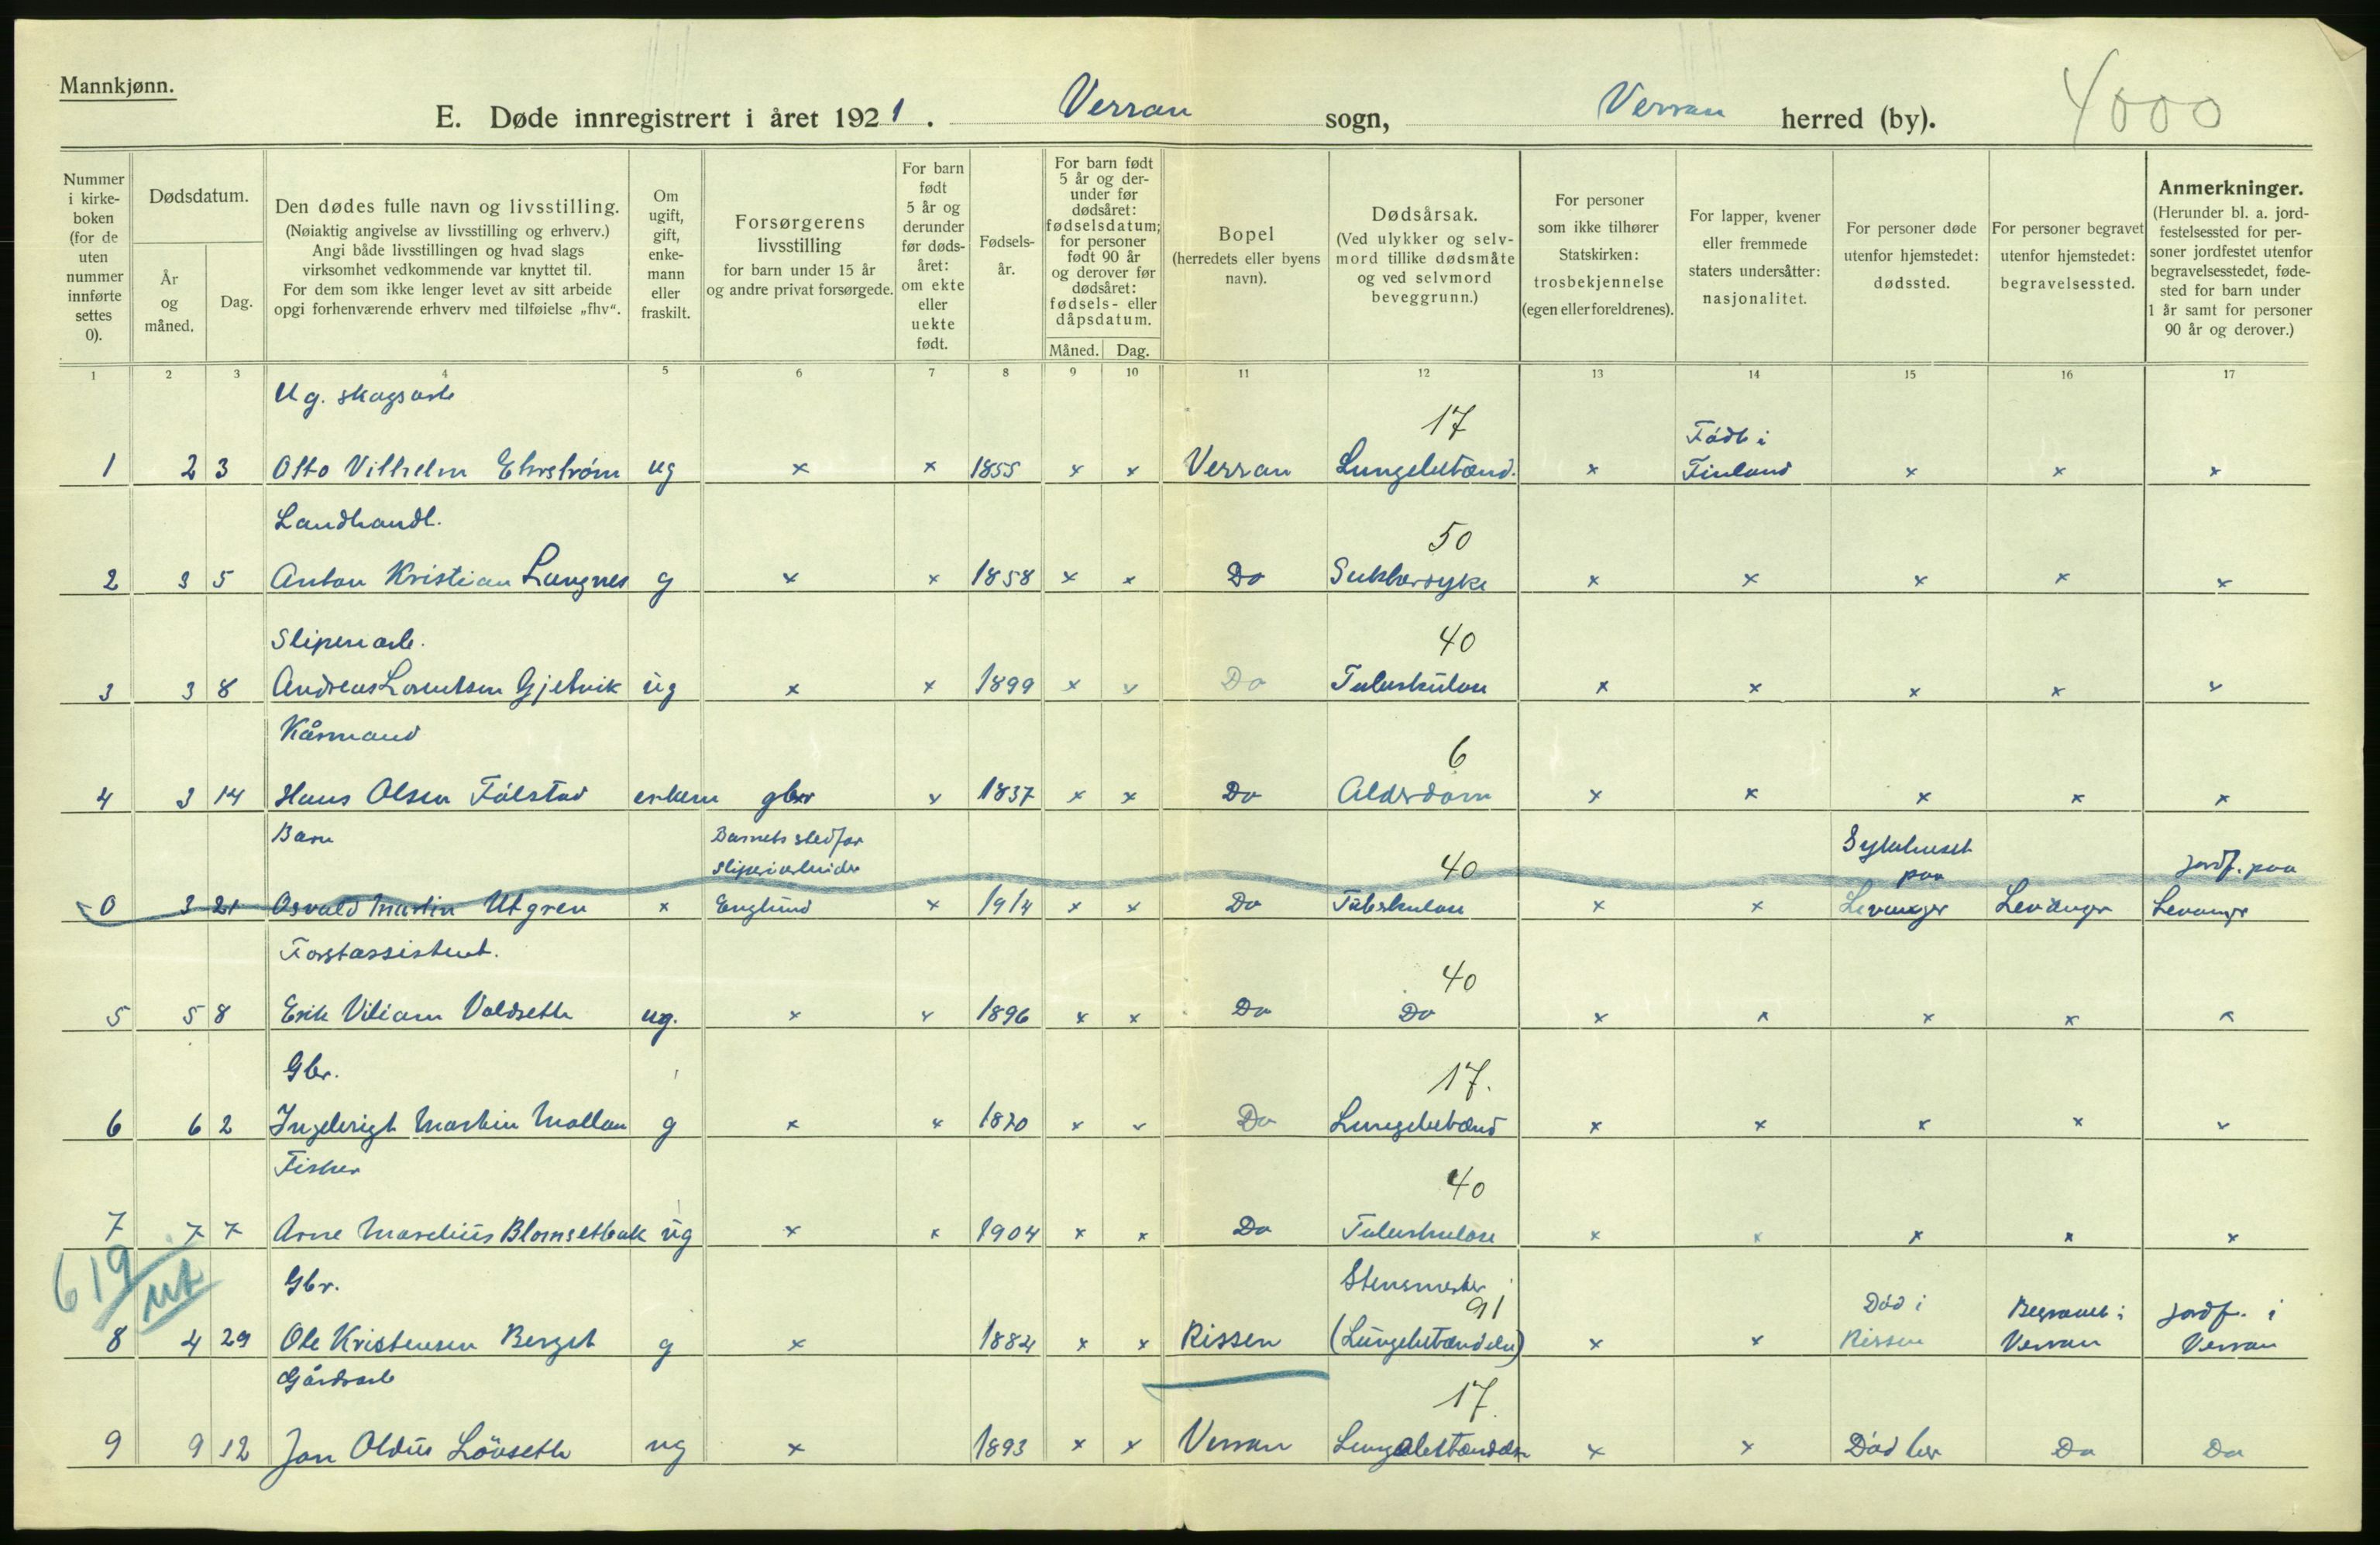 Mannkjønn.
E. Døde innregistrert i året 1921. Verran sogn, Verran herred (by). 4000
Nummer i kirkeboken (for de uten nummer innførte settes 0).
Dødsdatum.
År og måned.
Dag.
Den dødes fulle navn og livsstilling.
(Nøiaktig angivelse av livsstilling og erhverv.)
Angi både livsstillingen og hvad slags
virksomhet vedkommende var knyttet til.
For dem som ikke lenger levet av sitt arbeide
opgi forhenværende erhverv med tilføielse „fhv“.
Om ugift, gift, enkemann eller fraskilt.
Forsørgerens livsstilling
for barn under 15 år
og andre privat forsørgede.
For barn født 5 år og derunder før dødsåret: om ekte eller uekte født.
Fødselsår.
For barn født 5 år og derunder før dødsåret: fødselsdatum; for personer født 90 år og derover før dødsåret: fødsels- eller dåpsdatum.
Måned. Dag.
Bopel
(herredets eller byens navn).
Dødsårsak.
(Ved ulykker og selvmord tillike dødsmåte og ved selvmord beveggrunn.)
For personer som ikke tilhører Statskirken: trosbekjennelse (egen eller foreldrenes).
For lapper, kvener eller fremmede staters undersåtter: nasjonalitet.
For personer døde utenfor hjemstedet: dødssted.
For personer begravet utenfor hjemstedet: begravelsessted.
Anmerkninger.
(Herunder bl. a. jordfestelsessted for personer jordfestet utenfor begravelsesstedet, fødested for barn under 1 år samt for personer 90 år og derover.)
1 2 3 4 5 6 7 8 9 10 11 12 13 14 15 16 17
Ug. skogsarb
17
Födt i
1 2 3 Otto Vilhelm Ehrström ug x x 1855 x x Verran Lungebetænd. x Finland x x x
Landhandl.
50
2 3 5 Anton Kristian Langnes g x x 1858 x x Do Sukkersyke x x x x x
Sliperiarb.
40
3 3 8 Andreas Lorentsen Gjetvik ug x x 1899 x x Do Tuberkulose x x x x x
Kårmand
6
4 3 14 Hans Olsen Fölstad enkem gbr x 1837 x x Do Alderdom x x x x x
Barn Barnets stedfar
Sykehuset
sliperiarbeider 40 paa jordf. paa
0 3 21 Osvald Martin Utgren x Englund x 1914 x x Do Tuberkulose x x Levanger Levanger Levanger
Forstassistent.
40
5 5 8 Erik Viliam Valdseth ug. x x 1896 x x Do Do x x x x x
Gbr.
17.
6 6 2 Ingebrigt Martin Mollan g x x 1870 x x Do Lungebetænd x x x x x
Fisker
40
7 7 7 Arne Marelius Blomsetbak ug x x 1904 x x Do Tuberkulose x x x x x
619 ut
Gbr. Stensmerter
91 Död i Begravet i jordf. i
8 4 29 Ole Kristensen Berget g x 1882 x x Rissen (Lungebetændelse) x x Rissen Verran Verran
Gårdsarb
17.
9 9 12 Jon Oldus Lövseth ug x 1893 x x Verran Lungebetændelse x x Död her Do Do